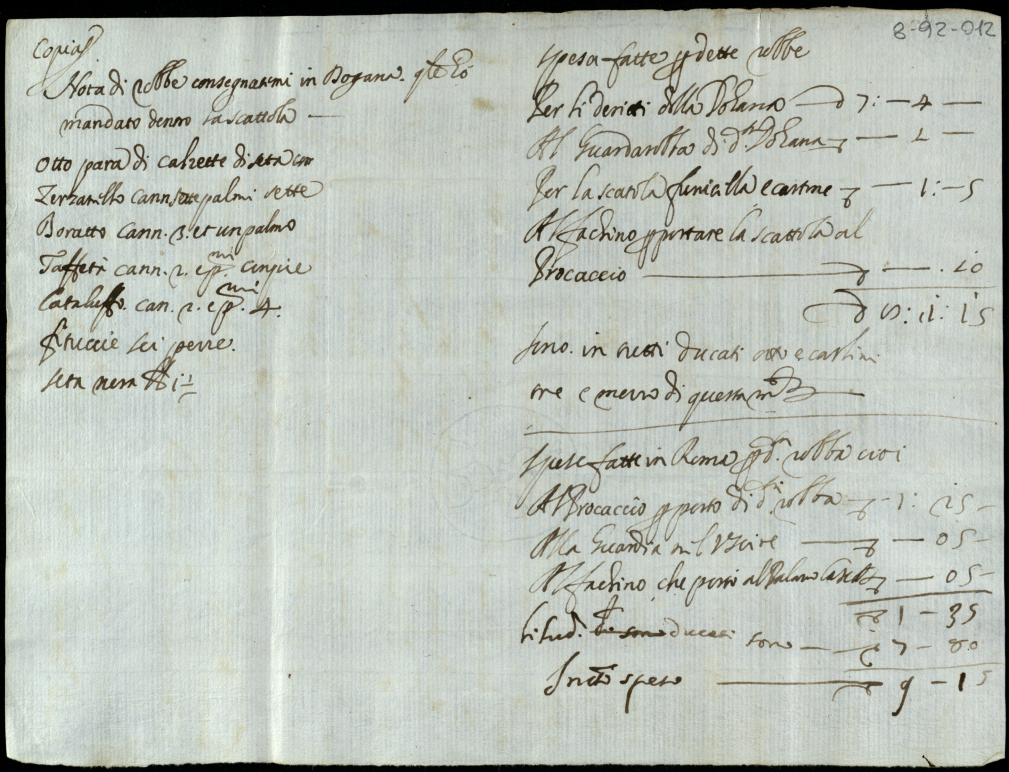 8-92-012
Copia
Nota di robbe consegnatemi in Dogana. qle Ho
mandato dentro la scattola —
Otto para di calzette di seta
Terzanello cann. sette palmi sette
Boratto cann. 3. et un palmo
Taffetà cann. 2. e pmi. cinque
Cataluffo. can. 2. e pmi. 4.
fituccie sei pezze.
seta nera
spesa fatte p dette robbe
Per li deritti della Dohana — D 7: — 4 —
Al Guardarobba di dta Dohana — 1 —
Per la scatola funicella e cartone — 1: — 5
Al fachino p portare la scattola al
Procaccio — . 10
15
sono. in tutti ducati otto e carlini
tre e mezzo di questa mta
Spese fatte in Roma p da. robba cioè
Al Procaccio p porto di dta robba — 1: 25 —
Alla Guardia nel Uscire — 05 —
Al fachino che portò al Palazzo — 05 —
1 — 35
li sud. ducati sono — 7 — 80
In tto speso — 9 — 15